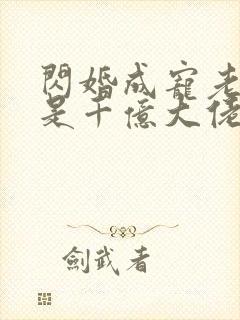 閃婚成寵老
是千億大佬
劍武者